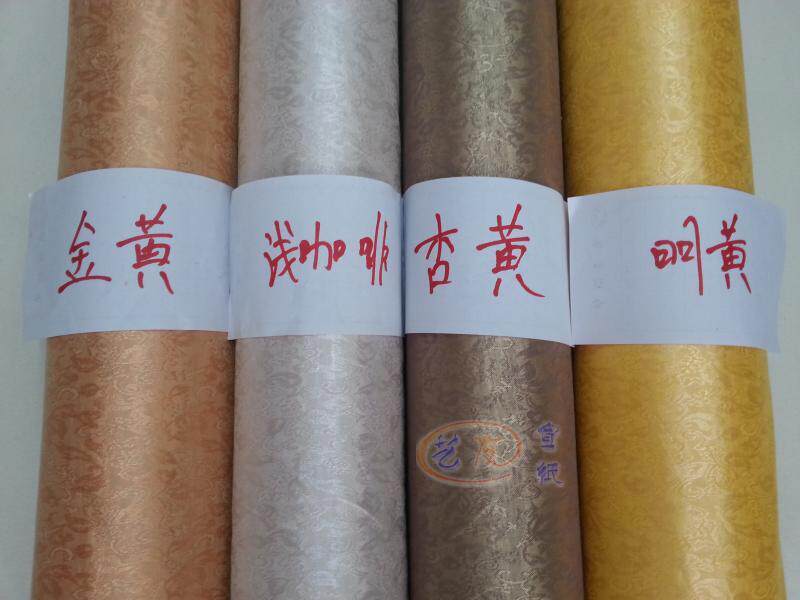 金黄
浅咖啡
杏黄
明黄
艺友
宣纸